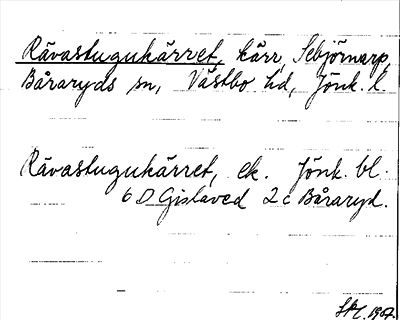 Rävastugukärret, kärr, Sebjörnarp,
Båraryds sn, Västbo hd, Jönk. l.
Rävastugukärret, ek. Jönk. bl.
6 D Gislaved 2 c Båraryd.
1967.